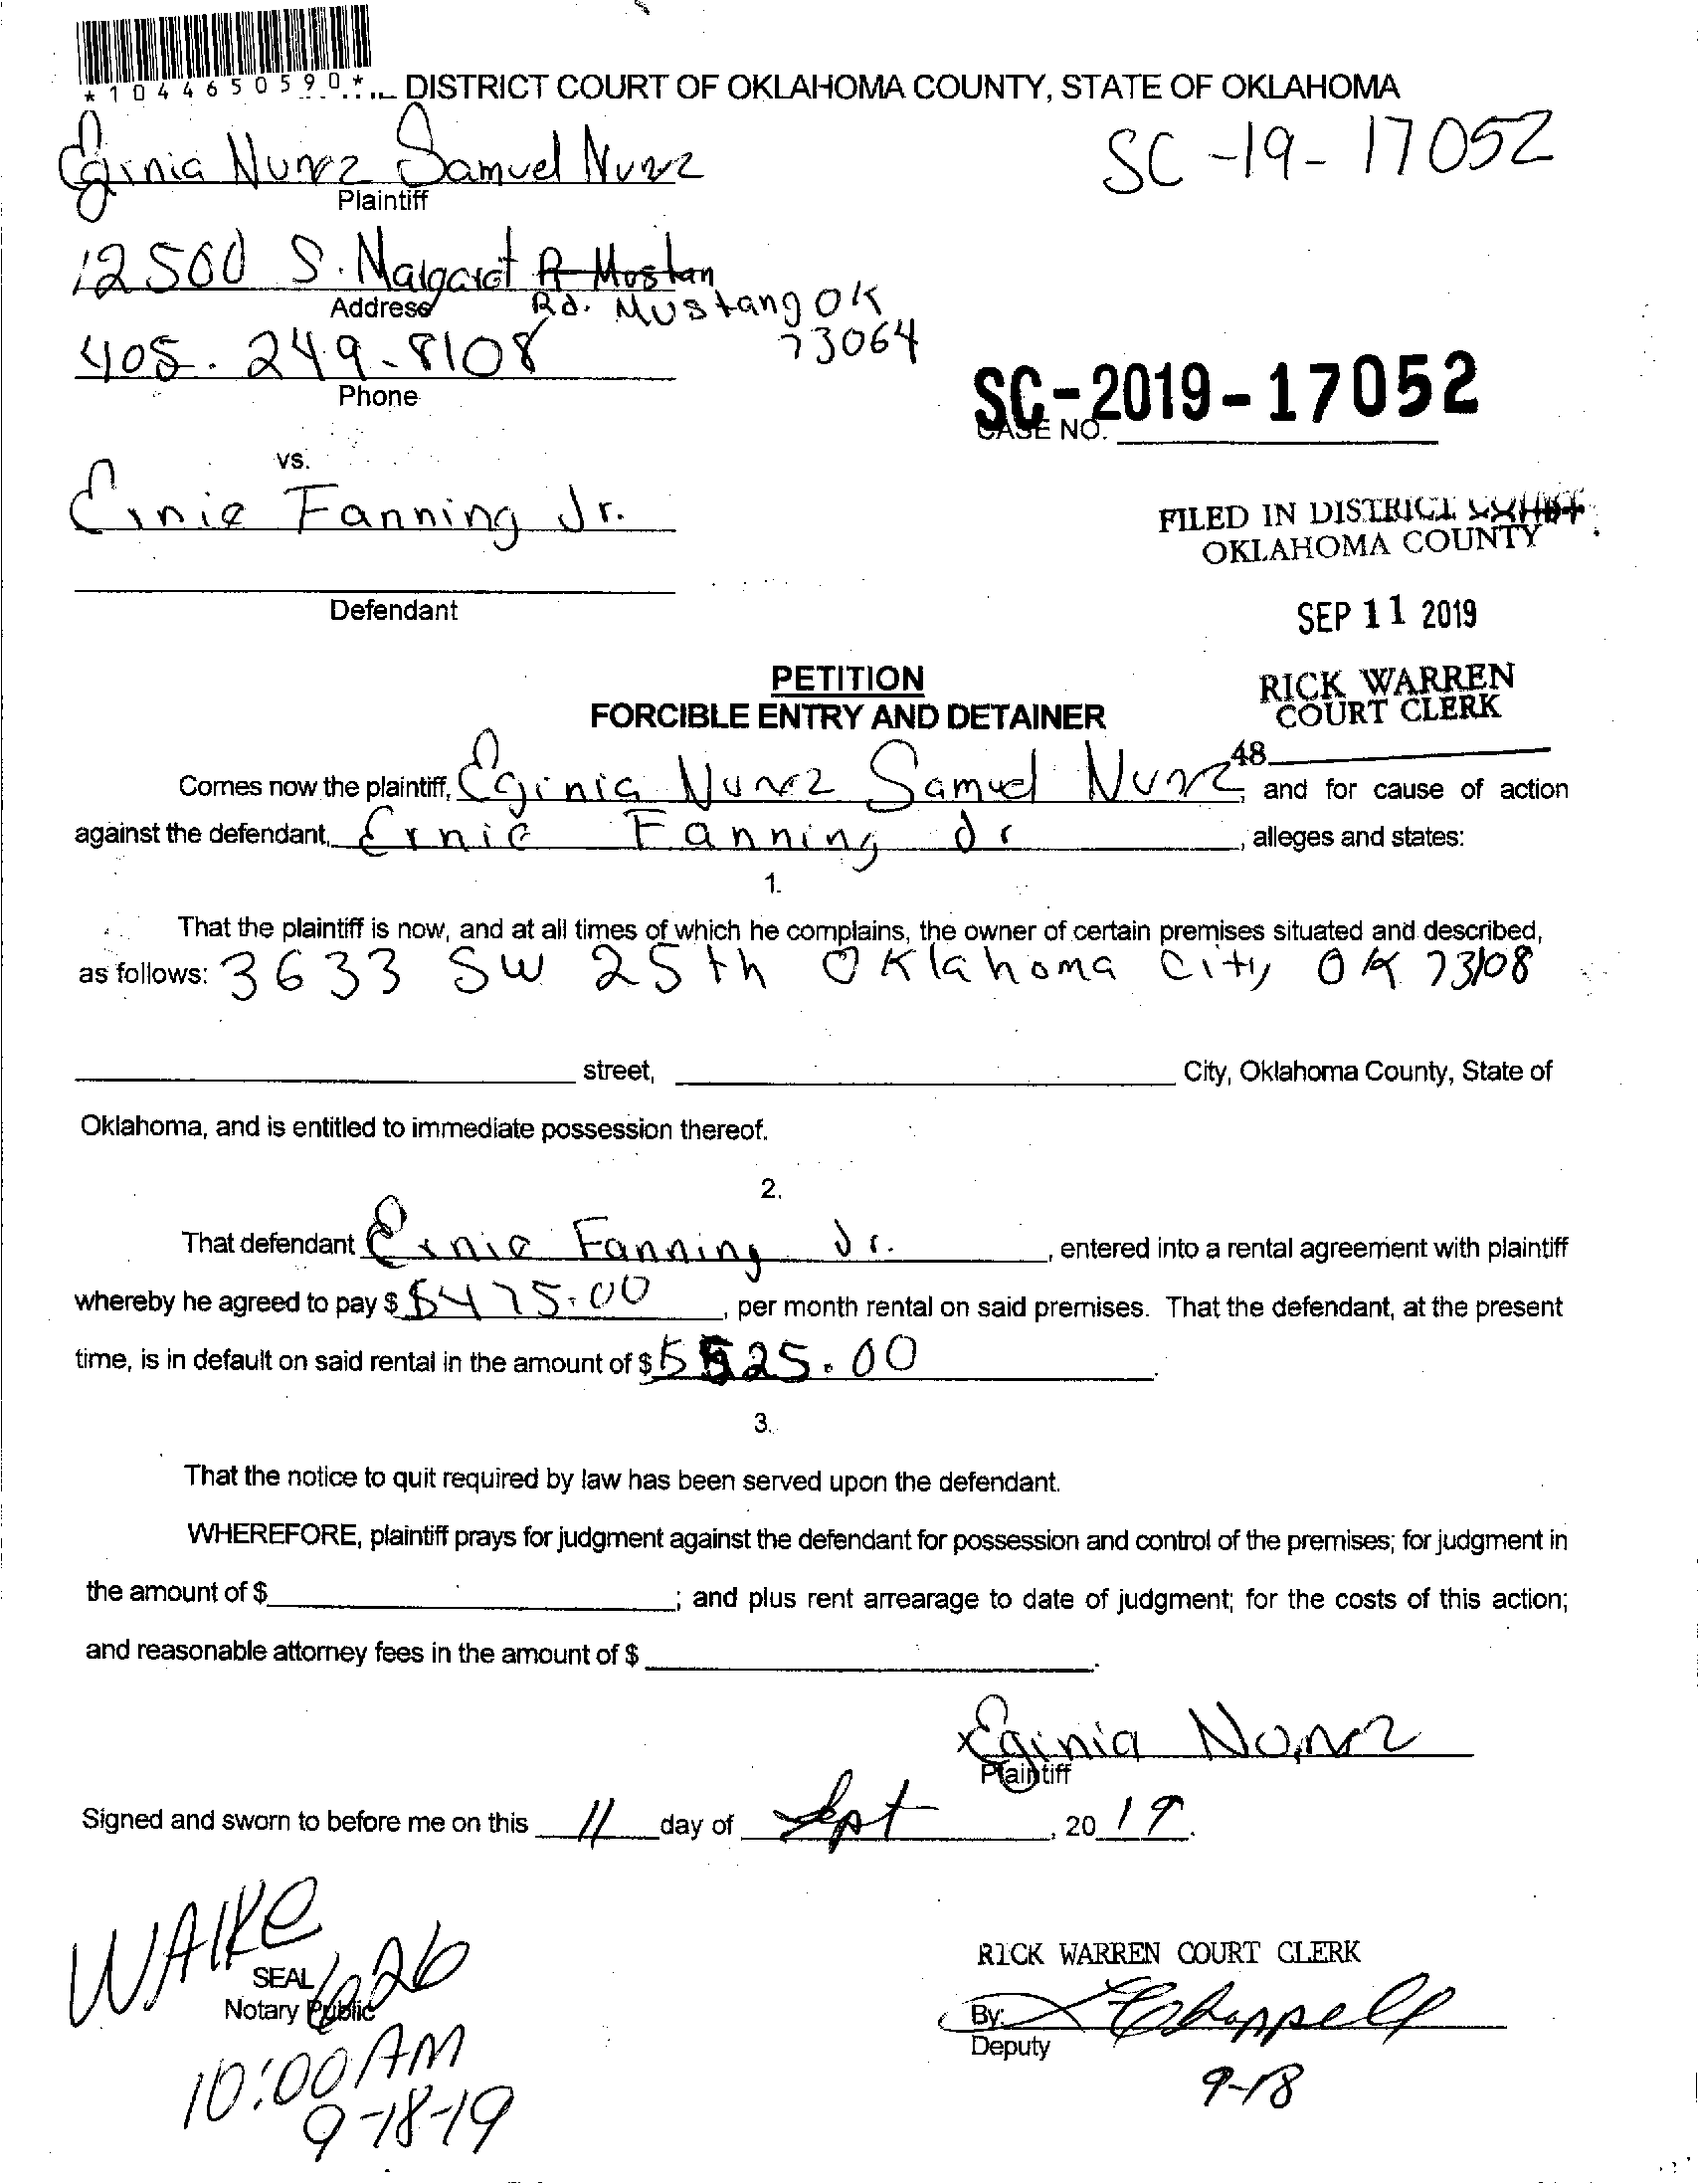 *1044650590*
DISTRICT COURT OF OKLAHOMA COUNTY, STATE OF OKLAHOMA
Eginia Nunez Samuel Nunez
Plaintiff
SC-19-17052
12500 S. Margaret R Mustan
Address
Rd. Mustang OK
73064
405.249-8108
Phone
SC-2019-17052
CASE NO.
vs.
Ernie Fanning Jr.
FILED IN DISTRICT COURT
OKLAHOMA COUNTY
Defendant
SEP 11 2019
PETITION
FORCIBLE ENTRY AND DETAINER
RICK WARREN
COURT CLERK
48
Comes now the plaintiff, Eginia Nunez Samuel Nunez, and for cause of action
against the defendant, Ernie Fanning Jr, alleges and states:
1.
That the plaintiff is now, and at all times of which he complains, the owner of certain premises situated and described,
as follows: 3633 SW 25th Oklahoma City OK 73108
street, City, Oklahoma County, State of
Oklahoma, and is entitled to immediate possession thereof.
2.
That defendant Ernie Fanning Jr., entered into a rental agreement with plaintiff
whereby he agreed to pay $ $475.00, per month rental on said premises. That the defendant, at the present
time, is in default on said rental in the amount of $ 5525.00.
3.
That the notice to quit required by law has been served upon the defendant.
WHEREFORE, plaintiff prays for judgment against the defendant for possession and control of the premises; for judgment in
the amount of $ ; and plus rent arrearage to date of judgment; for the costs of this action;
and reasonable attorney fees in the amount of $ .
x Eginia Nunez
Plaintiff
Signed and sworn to before me on this 11 day of Sept, 20 19.
WAlke
SEAL 626
Notary Public
10:00 AM
9-18-19
RICK WARREN COURT CLERK
By: Chappell
Deputy
9-18